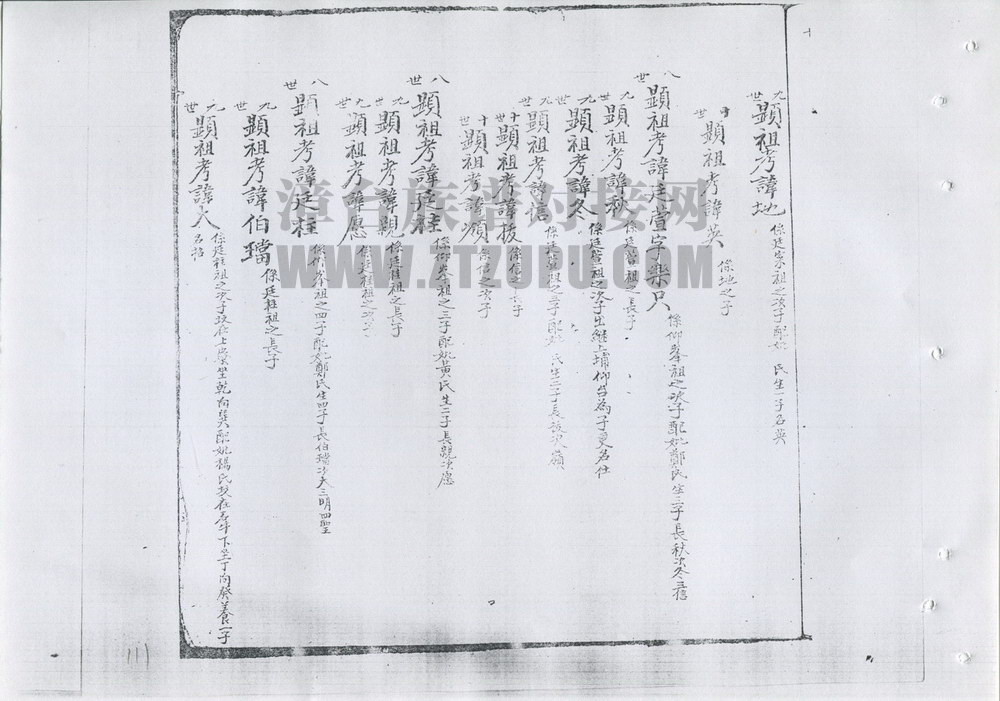 九世 顯祖考諱地 係廷宷祖之次子配妣 氏生一子名英
十世 顯祖考諱英 係地之子
八世 顯祖考諱廷萱字樂只 係仰峯祖之次子配妣鄭氏生三子長秋次冬三信
九世 顯祖考諱秋 係廷萱祖之長子
九世 顯祖考諱冬 係廷萱祖之次子出継上埔仰台為子更名仕
九世 顯祖考諱信 係廷萱祖之三子配妣 氏生二子長拔次
十世 顯祖考諱拔 係信之長子
十世 顯祖考諱 係信之次子
八世 顯祖考諱廷桂 係仰峯祖之三子配妣黃氏生二子長親次愿
九世 顯祖考諱親 係廷桂祖之長子
九世 顯祖考諱愿 係廷桂祖之次子
八世 顯祖考諱廷柱 係仰峯祖之四子配妣鄭氏生四子長伯璫次大三明四聖
九世 顯祖考諱伯璫 係廷柱祖之長子
九世 顯祖考諱大 名 係廷柱祖之次子坟在上 乾向巽配妣楊氏坟在 下 丁向癸養一子
漳台族谱对接网
WWW.ZTZUPU.COM